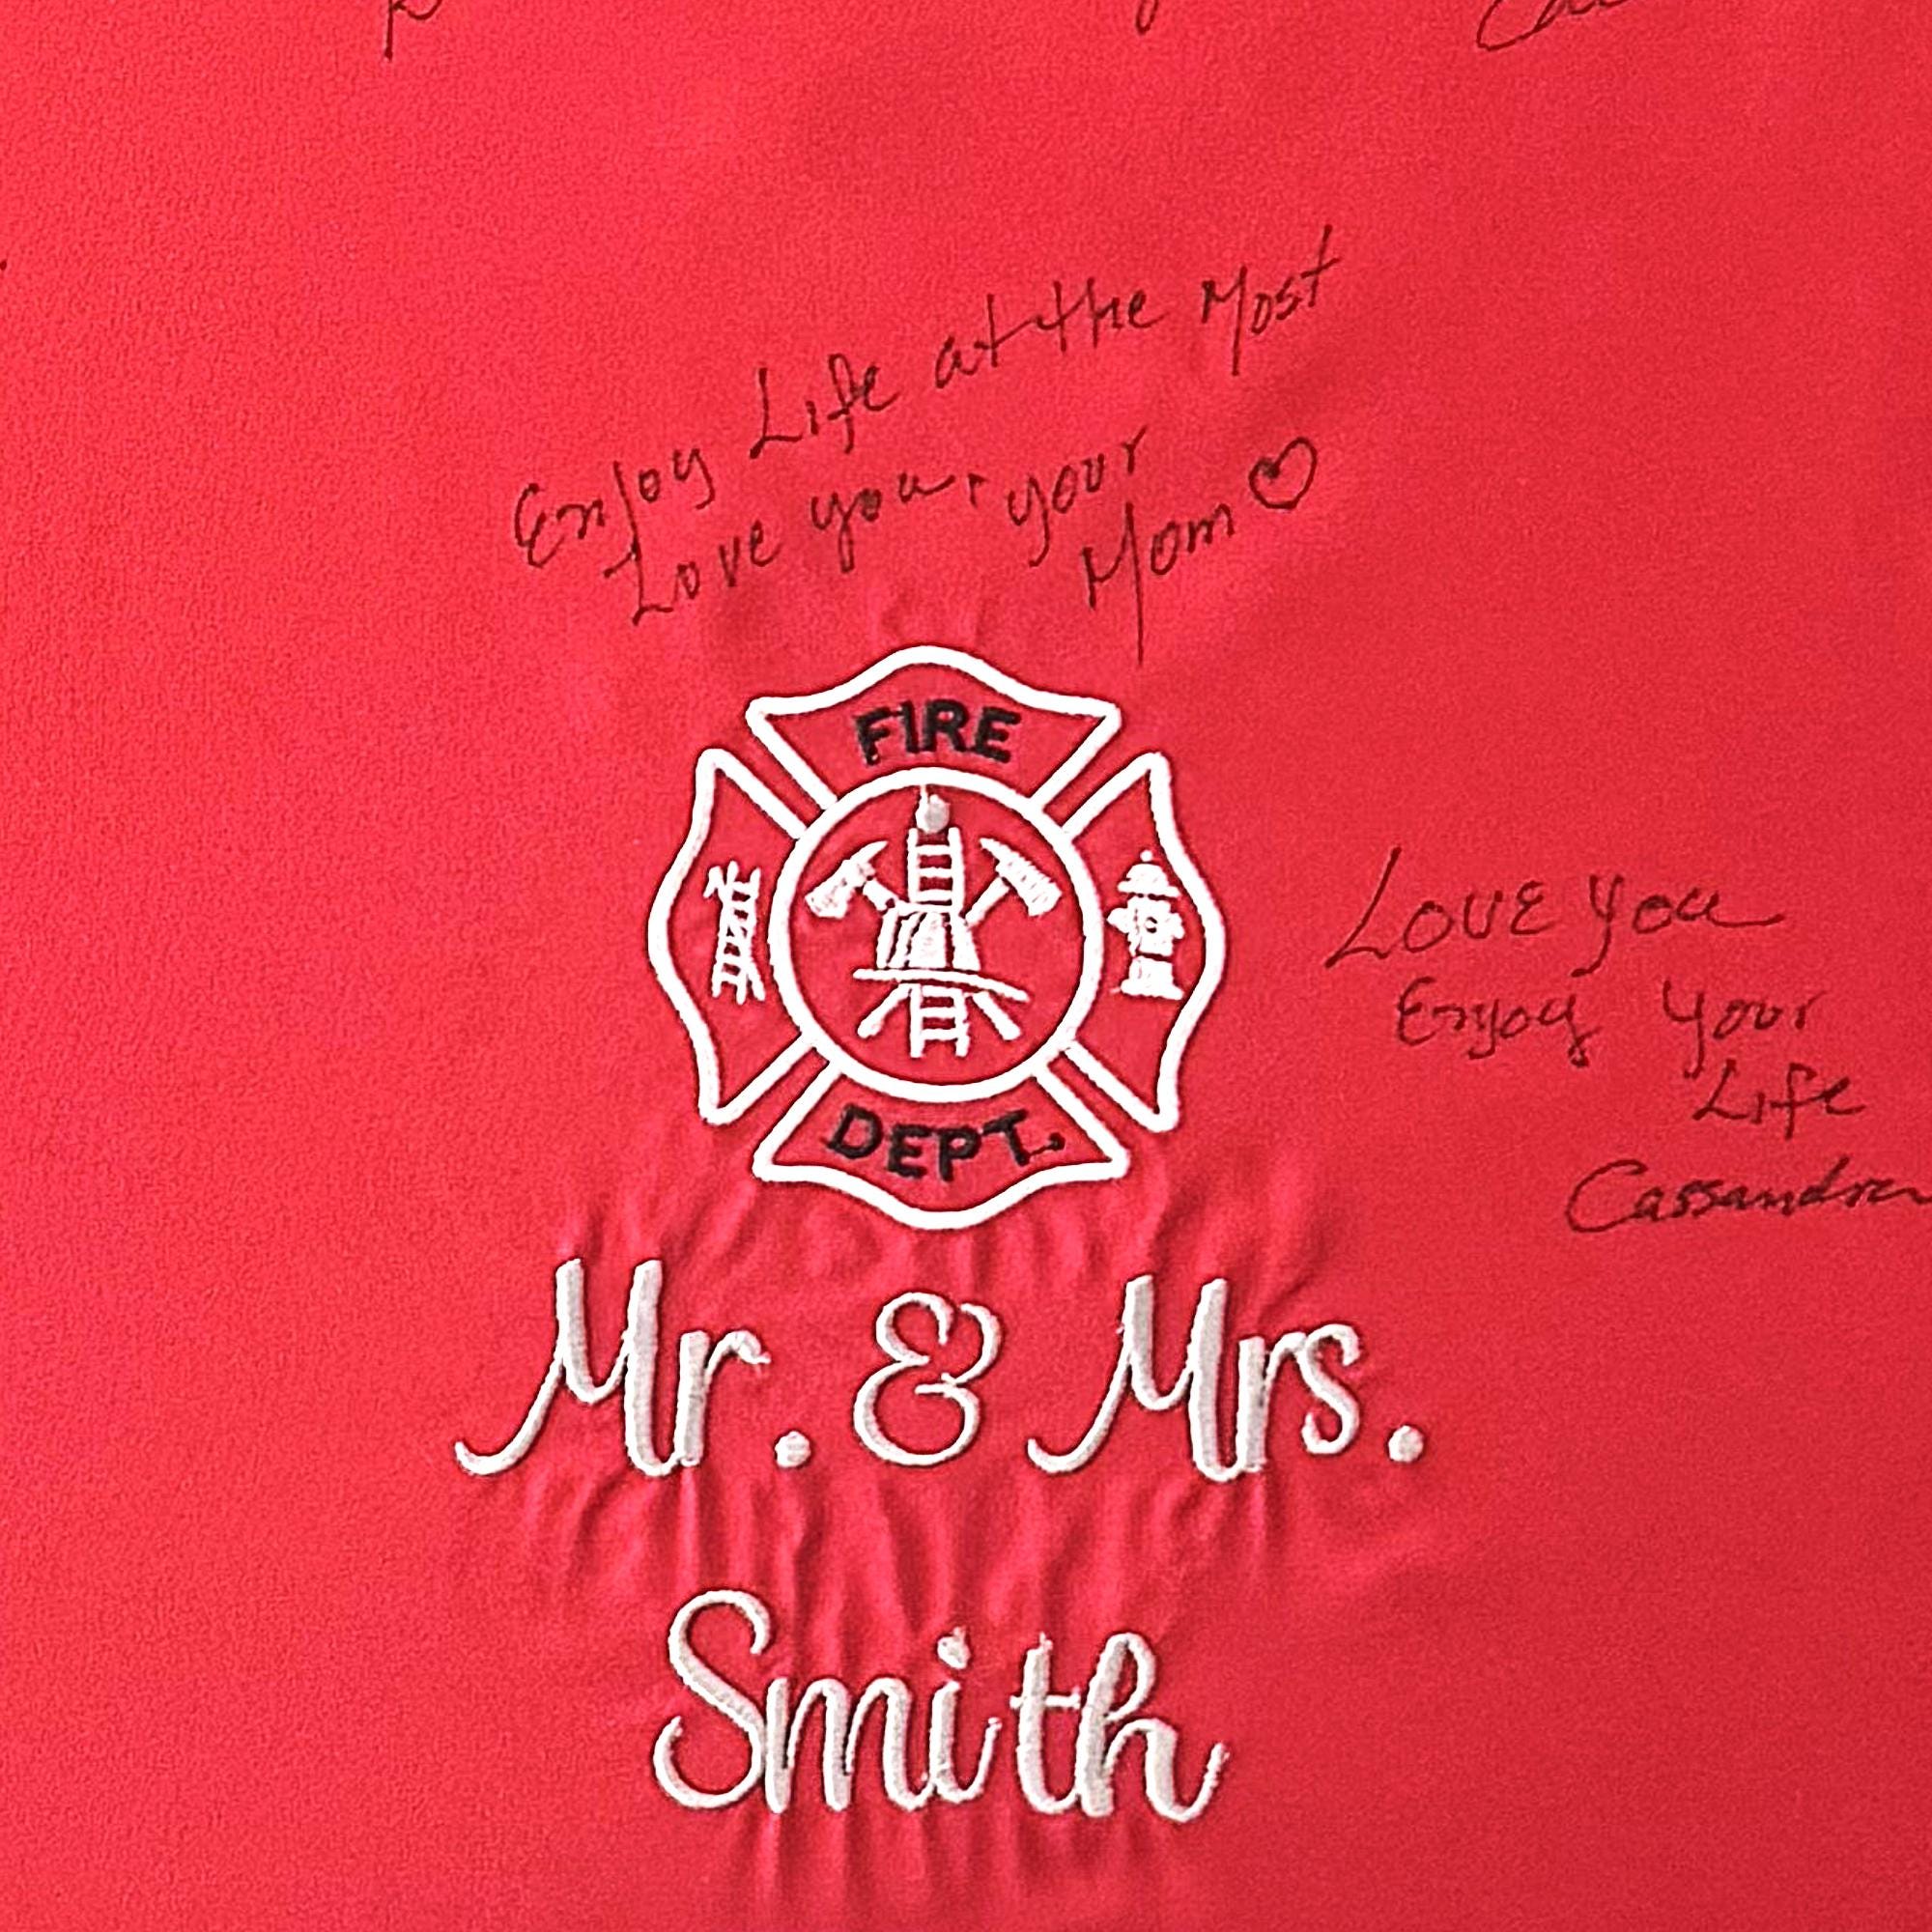 Enjoy Life at the Most
Love you, your
Mom ♡
FIRE
DEPT.
Love you
Enjoy your
Life
Cassandra
Mr. & Mrs.
Smith